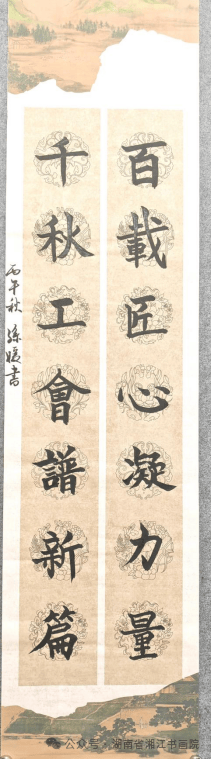 百載匠心凝力量
千秋工會譜新篇
丙午秋 孫媛書
公众号 · 湖南省湘江书画院